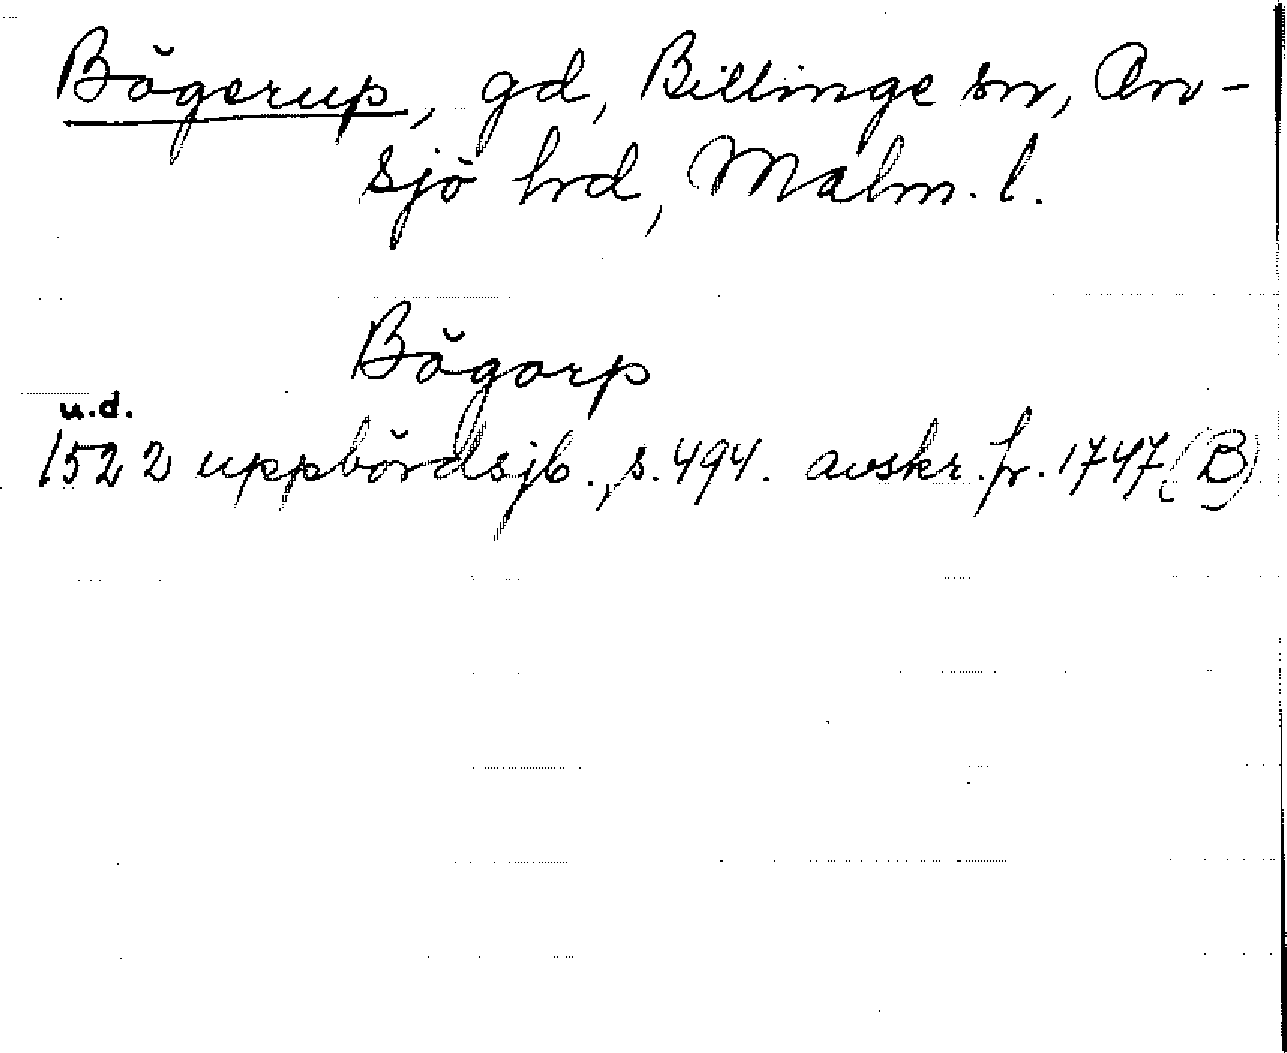 Bögerup, gd, Billinge sn, On-
sjö hrd, Malm. l.
Bögorp
u.d.
1522 uppbördsjb., s. 494. avskr. fr. 1747 (B)